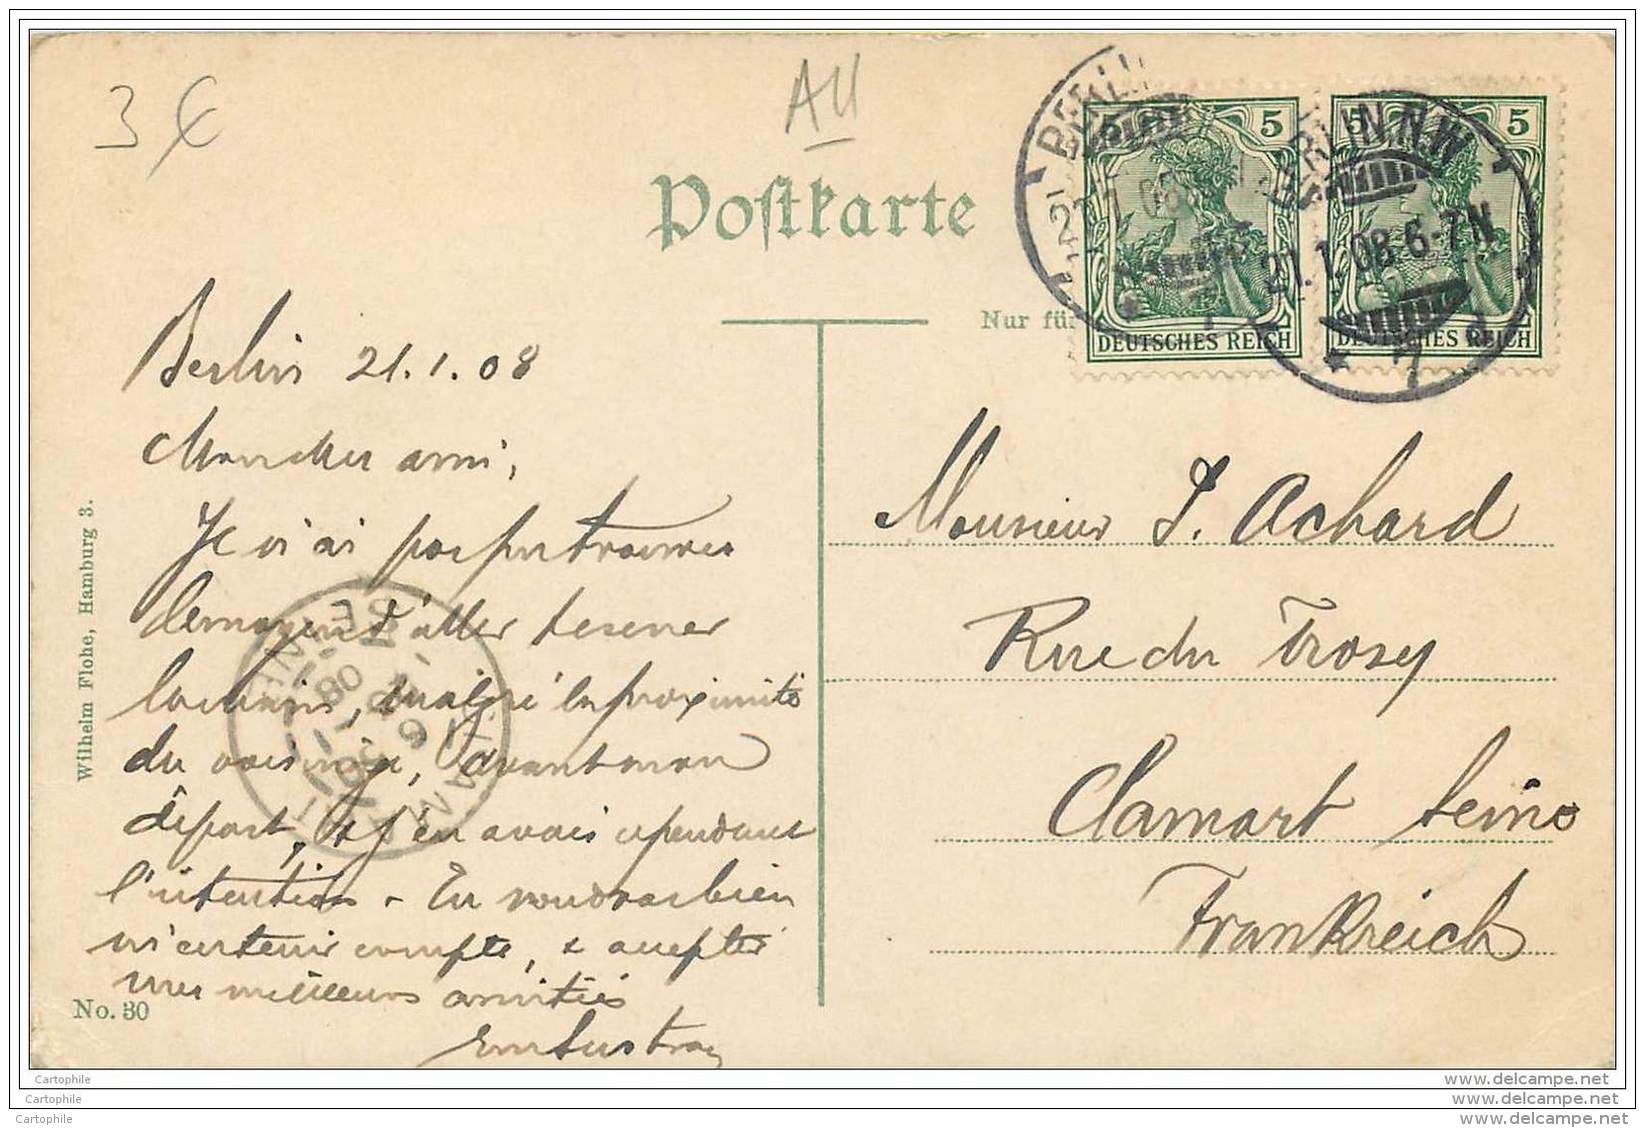 3 €
All
Postkarte
Nur für
5 5 5
DEUTSCHES REICH DEUTSCHES REICH
BERLIN
21.1.08
BERLIN N.W.
21.1.08.6-7N
* 7
Berlin 21.1.08
Mon cher ami,
Je n'ai pas pu trouver
le moyen d'aller te serrer
la main, malgré la proximité
du voisinage, avant mon
départ, & j'en avais cependant
l'intention - Tu voudras bien
m'en tenir compte, & accepter
mes meilleures amitiés
Monsieur J. Achard
Rue du Trosy
Clamart Seine
Frankreich
CLAMART
SEINE
Wilhelm Flohe, Hamburg 3.
No. 30
Cartophile
Cartophile
Cartophile
www.delcampe.net
www.delcampe.net
www.delcampe.net